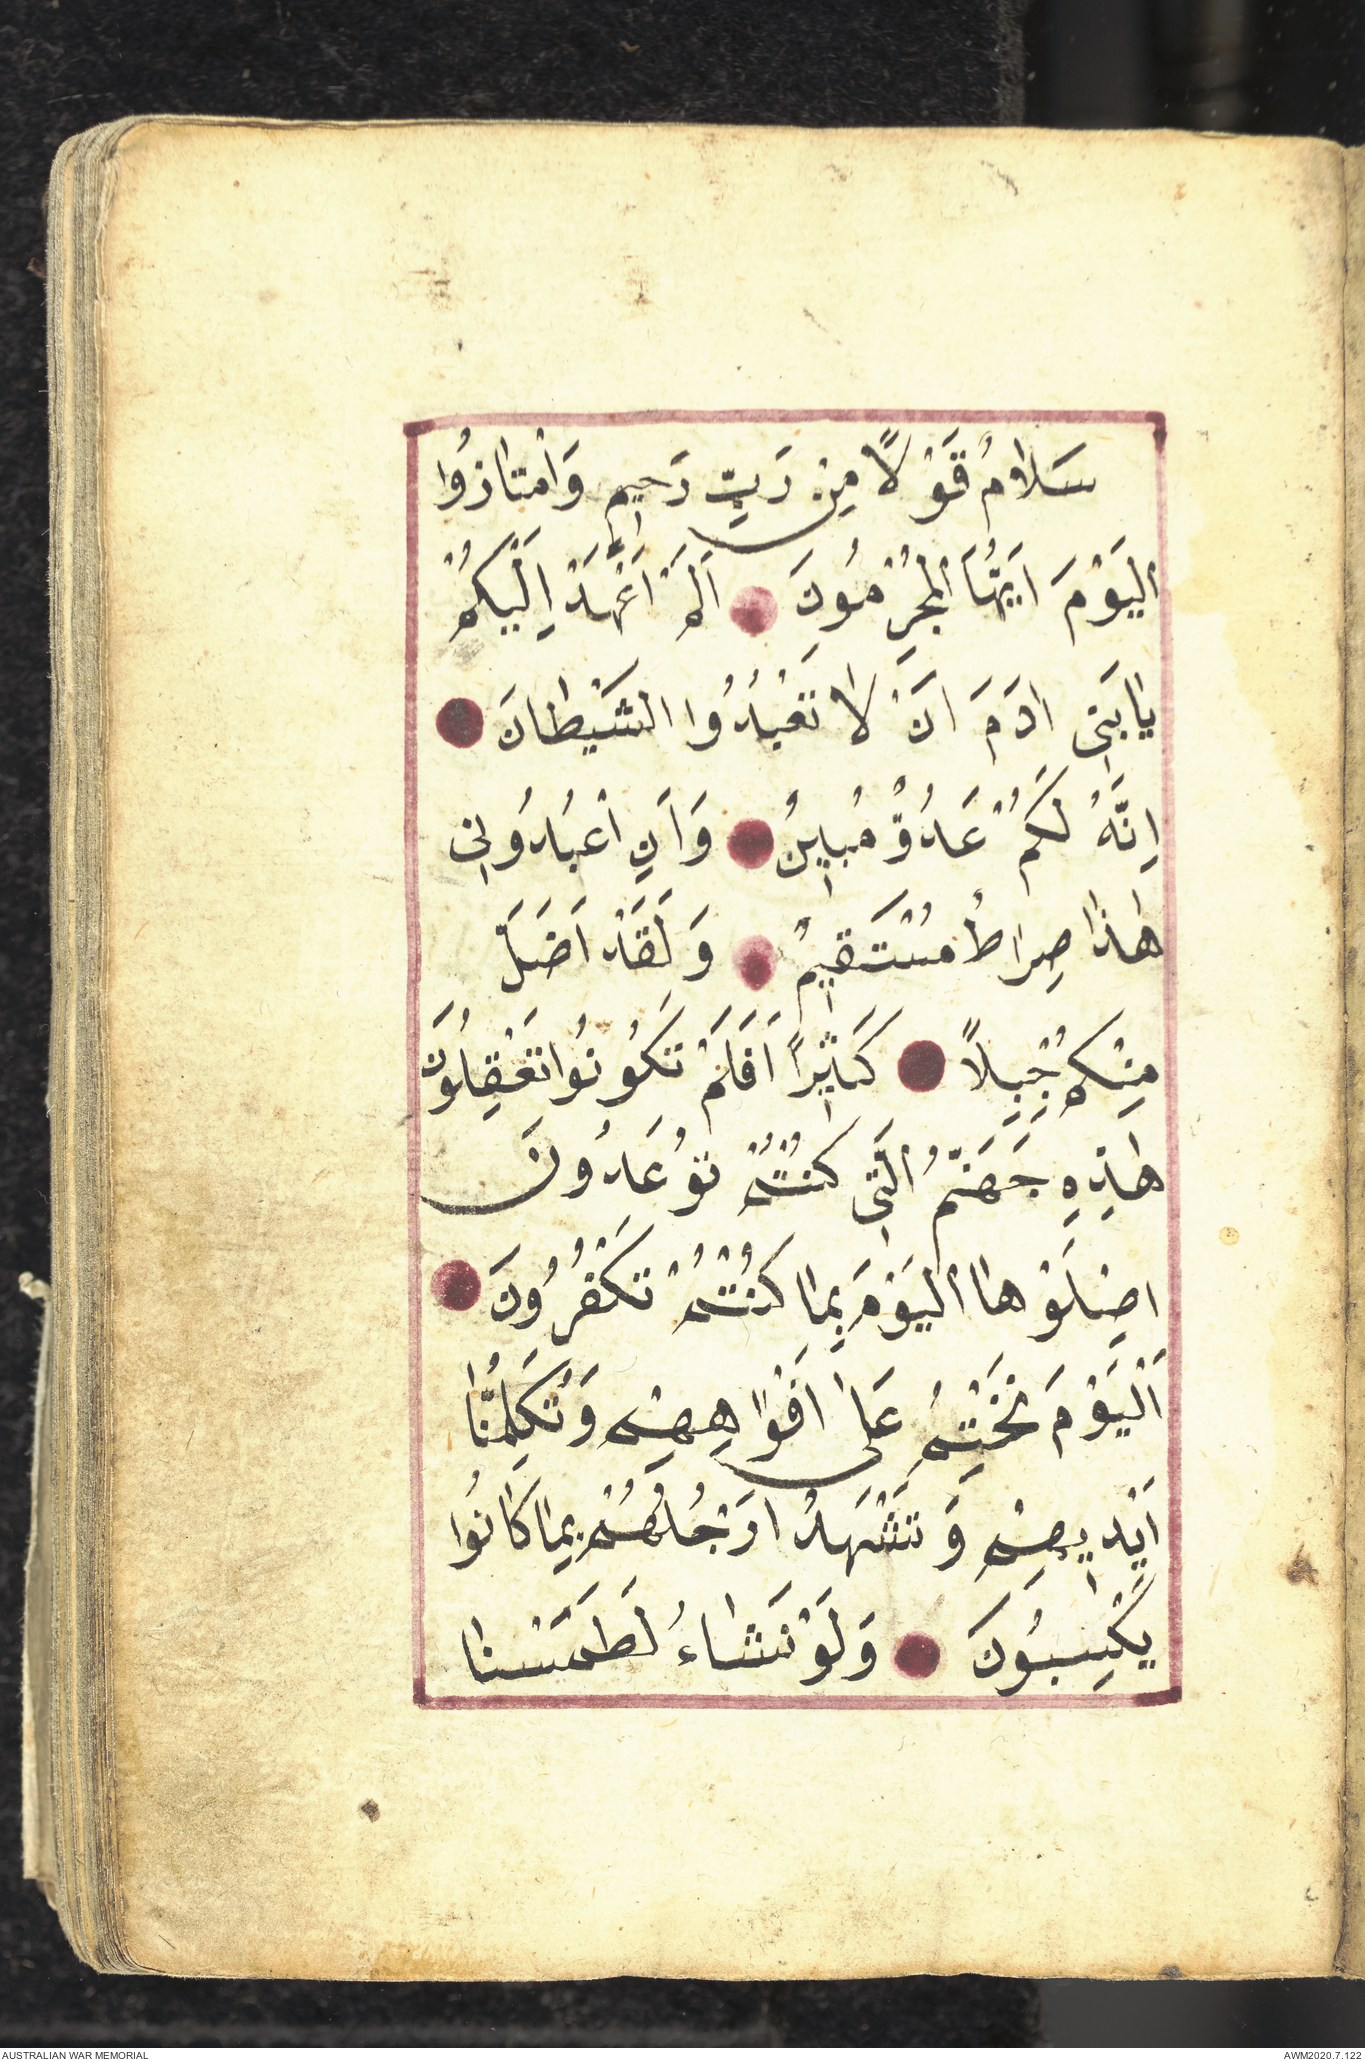 سَلَامٌ قَوْلًا مِنْ رَبٍّ رَحِيمٍ وَأمْتَازُوا
اَلْيَوْمَ اَيُّهَا اَلْمُجْرِمُونَ اَلَمْ اَعْهَدْ اِلَيْكُمْ
يَا بَنِى ادَمَ اَنْ لَا تَعْبُدُوا الشَيْطَانَ
اِنَّهُ لَكُمْ عَدُوٌّ مُبِينٌ وَاَنِ اعْبُدُونِى
هَاذَا صِرَاطٌ مُسْتَقِيمٌ وَلَقَدْ اَضَلَّ
مِنْكُمْ جُبِلًا كَثِيرًا اَفَلَمْ تَكُونُوا تَعْقِلُونَ
هَاذِهِ جَهَنَّمُ الَّتِى كُنْتُمْ تُوعَدُونَ
اصْلَوْهَا اَلْيَوْمَ بِمَا كُنْتُمْ تَكْفُرُونَ
اَلْيَوْمَ نَخْتِمُ عَلَى اَفْوَاهِهِمْ وَتُكَلِّمُنَا
اَيْدِيهِمْ وَتَشْهَدُ اَرْجُلُهُمْ بِمَا كَانُوا
يَكْسِبُونَ وَلَوْ نَشَاءُ لَطَمَسْنَا
AUSTRALIAN WAR MEMORIAL
AWM2020.7.122